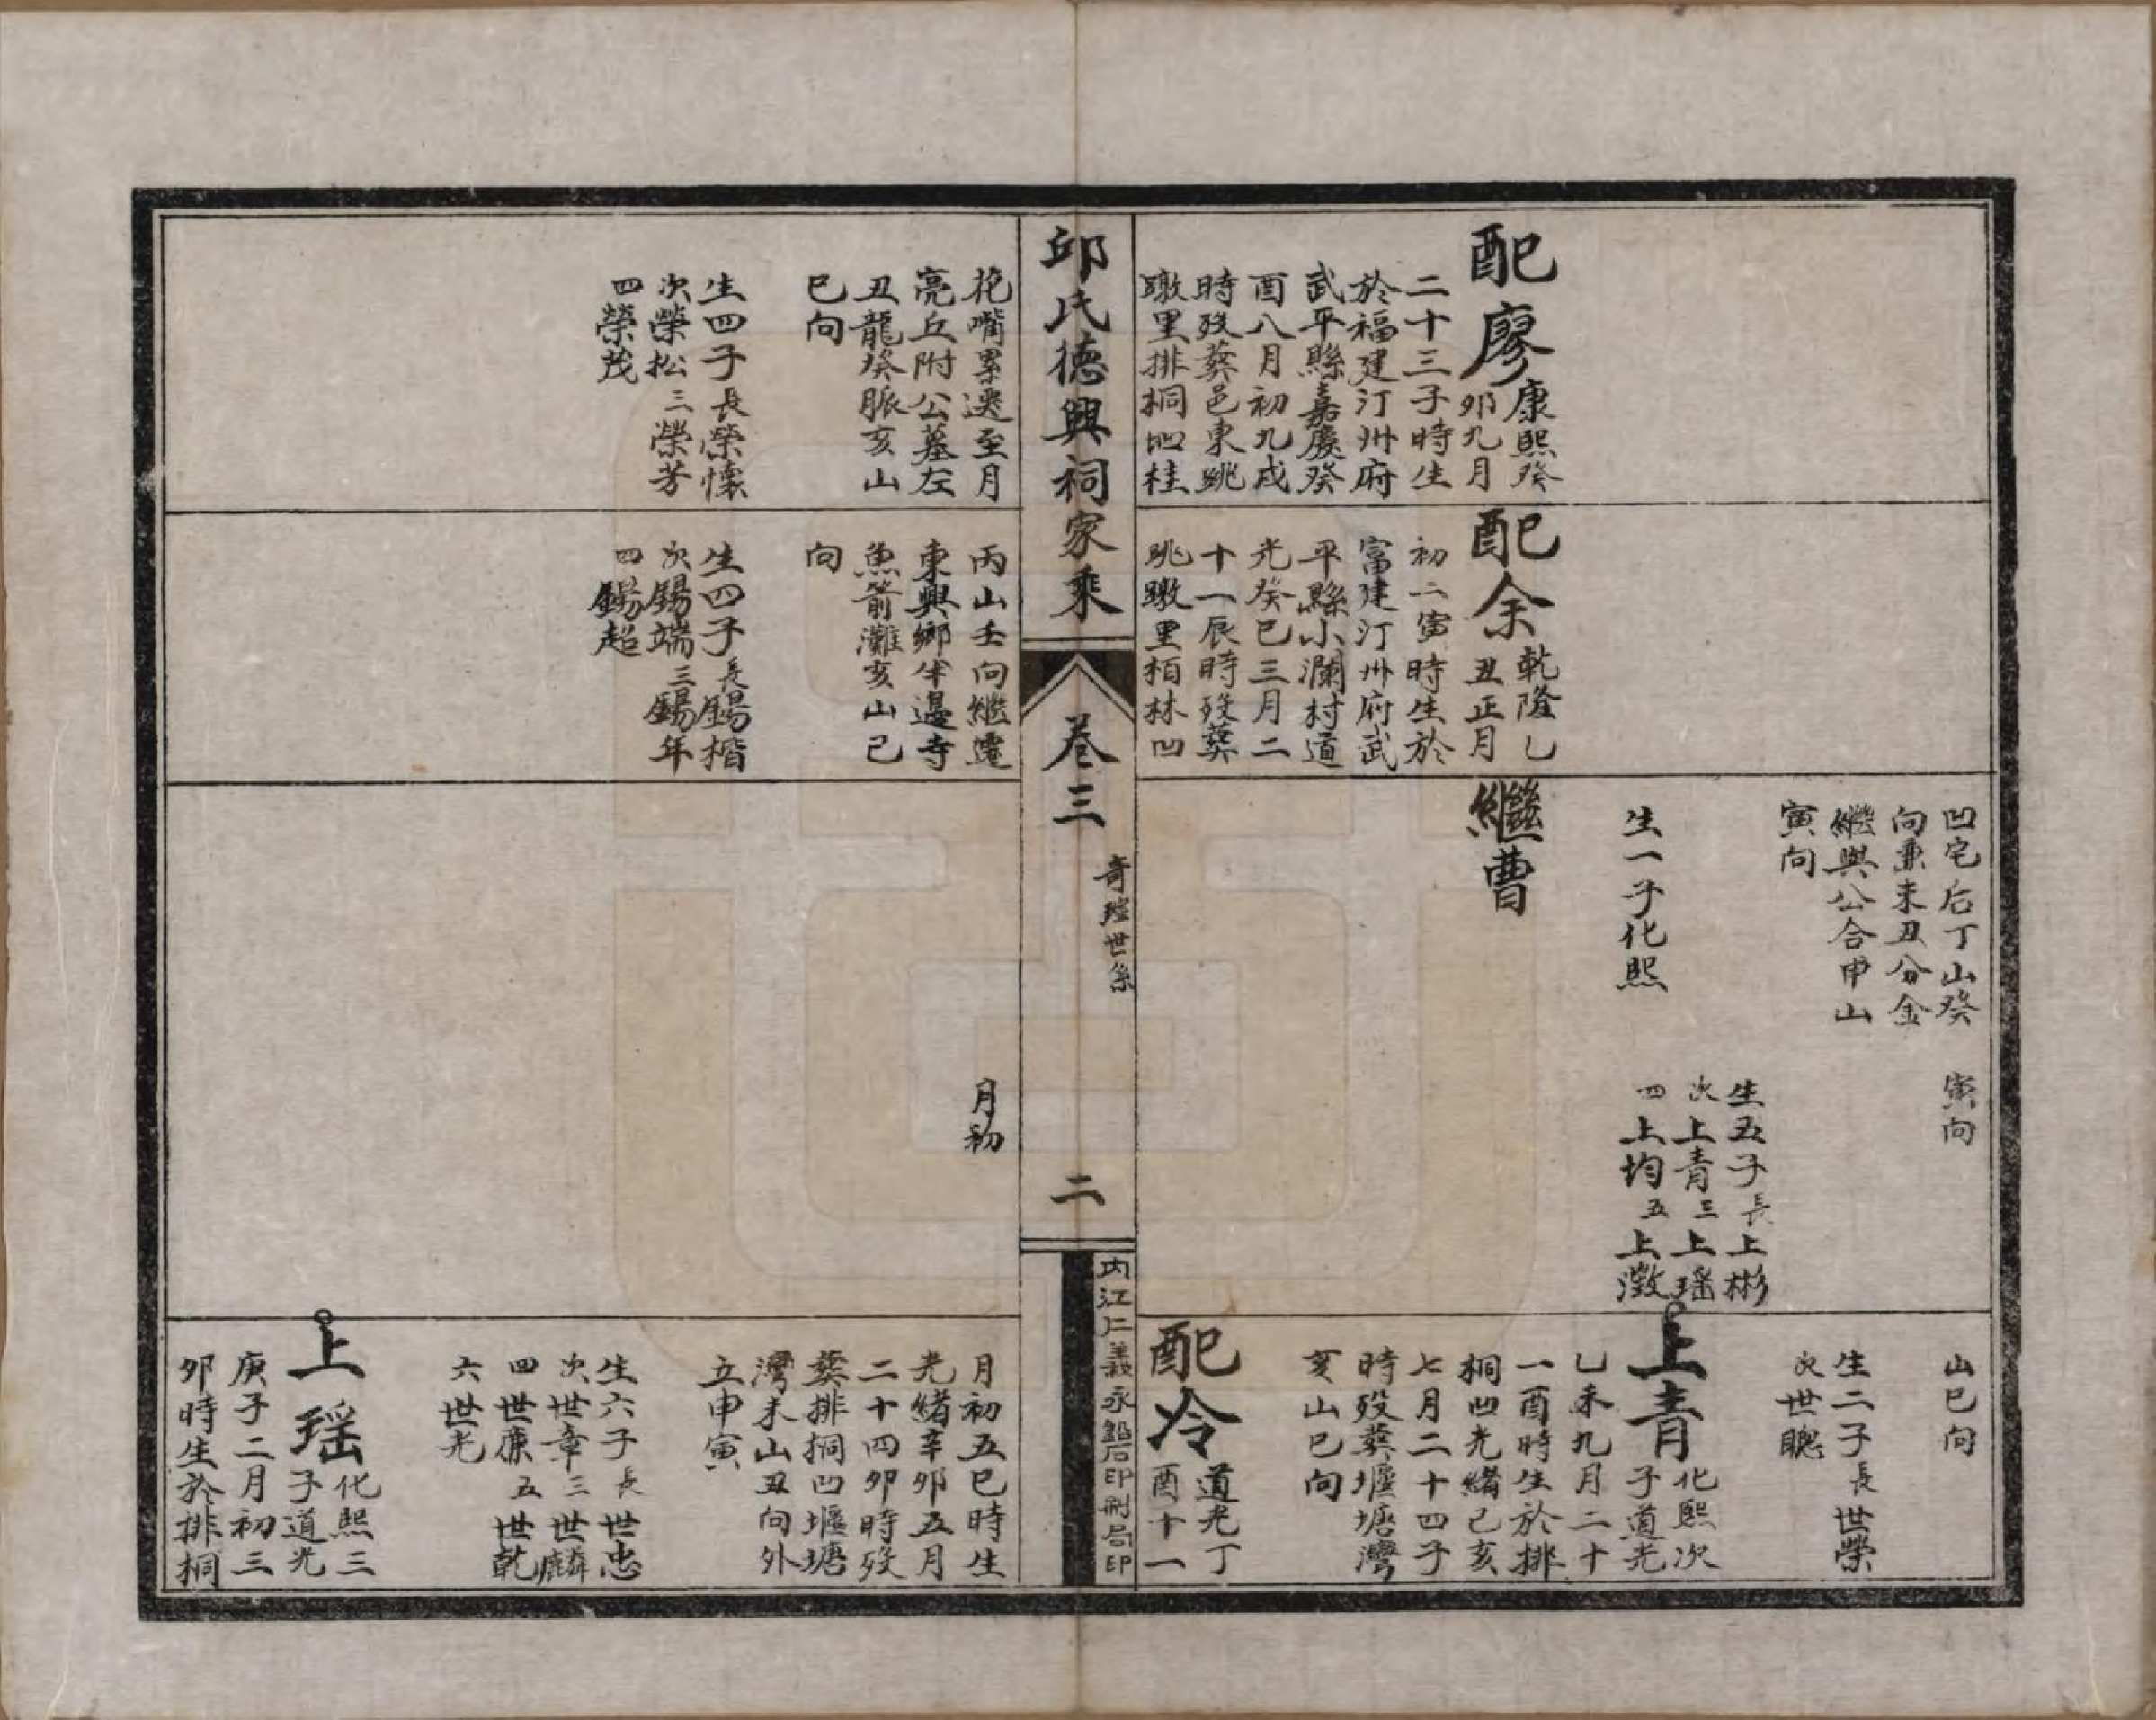 配廖康熙癸
卯九月
二十三子時生
於福建汀州府
武平縣嘉慶癸
酉八月初九戌
時歿葬邑東跳
墩里排桐凹桂
配余乾隆乙
丑正月
初二寅時生於
富建汀州府武
平縣小瀾村道
光癸巳三月二
十一辰時歿葬
跳墩里栢林凹
凹宅后丁山癸
向兼未丑分金
繼與公合申山
寅向
生一子化熙
繼曹
寅向
生五子長上彬
次上青三上瑤
四上均五上澂
山巳向
生二子長世榮
次世聰
上青化熙次
子道光
乙未九月二十
一酉時生於排
桐凹光緒己亥
七月二十四子
時歿葬堰塘灣
亥山巳向
配冷道光丁
酉十一
邱氏德興祠家乘
卷三
奇瑄世系
二
内江仁義永鉛石印刷局印
花嘴累遷至月
亮丘附公墓左
丑龍癸脈亥山
巳向
生四子長榮懷
次榮松三榮芳
四榮茂
丙山壬向繼遷
東興鄉半邊寺
魚箭灘亥山巳
向
生四子長錫楷
次錫端三錫年
四錫超
月初
月初五巳時生
光緒辛卯五月
二十四卯時歿
葬排桐凹堰塘
灣未山丑向外
立申寅
生六子長世忠
次世章三世麟
四世康五世乾
六世光
上瑤化熙三
子道光
庚子二月初三
卯時生於排桐